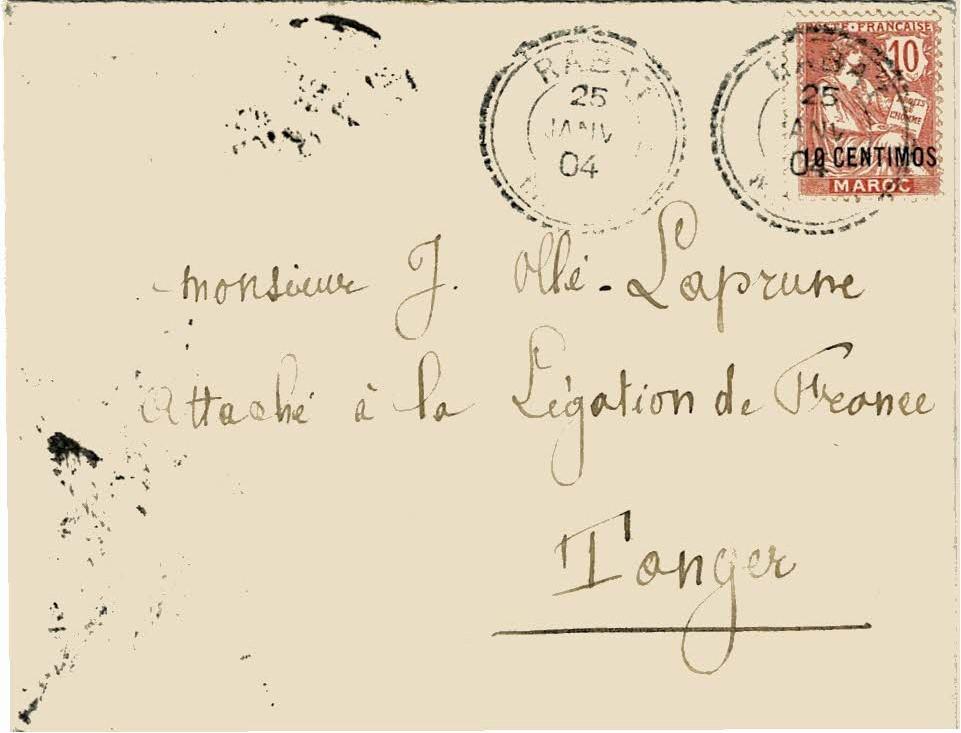 RABAT
25
JANV
04
RABAT
25
JANV
04
POSTE FRANÇAISE
10
DROITS
DE
L'HOMME
10 CENTIMOS
MAROC
monsieur J. Ollé-Laprune
Attaché à la Légation de France
Tanger